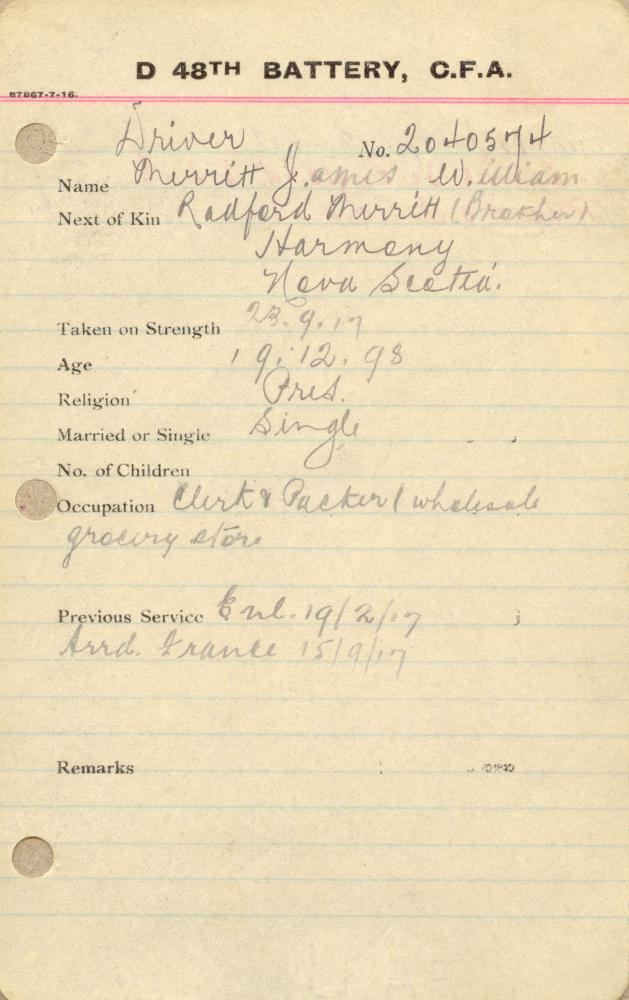 D 48TH BATTERY, C.F.A.
87867-7-16.
Driver No. 2040574
Name Merritt J. ames W. illiam
Next of Kin Radford Merritt (Brother)
Harmony
Nova Scotia.
Taken on Strength 23. 9. 17
Age 19. 12. 98
Religion Pres.
Married or Single Single
No. of Children
Occupation Clerk & Packer (wholesale
grocery store
Previous Service Enl. 19/2/17
Arrd. France 15/9/17
Remarks